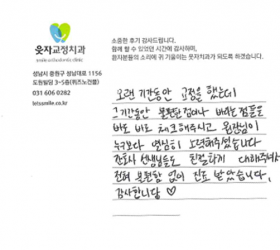 웃자교정치과
성남시 중원구 성남대로 1156
도원빌딩 3-5층(퀴즈노건물)
031 606 0282
letssmile.co.kr
소중한 후기 감사드립니다.
함께 할 수 있었던 시간에 감사하며,
환자분들의 소리에 귀 기울이는 웃자교정치과가 되도록 하겠습니다.
오랜 기간동안 교정을 했는데
그 기간동안 불편한 점이나 바라는 점들을
바로 바로 체크해주시고 원장님이
누구보다 열심히 노력해주셨습니다
간호사 선생님들도 친절하게 대해주셔
전혀 불편함 없이 진료 받았습니다,
감사합니당 ♡